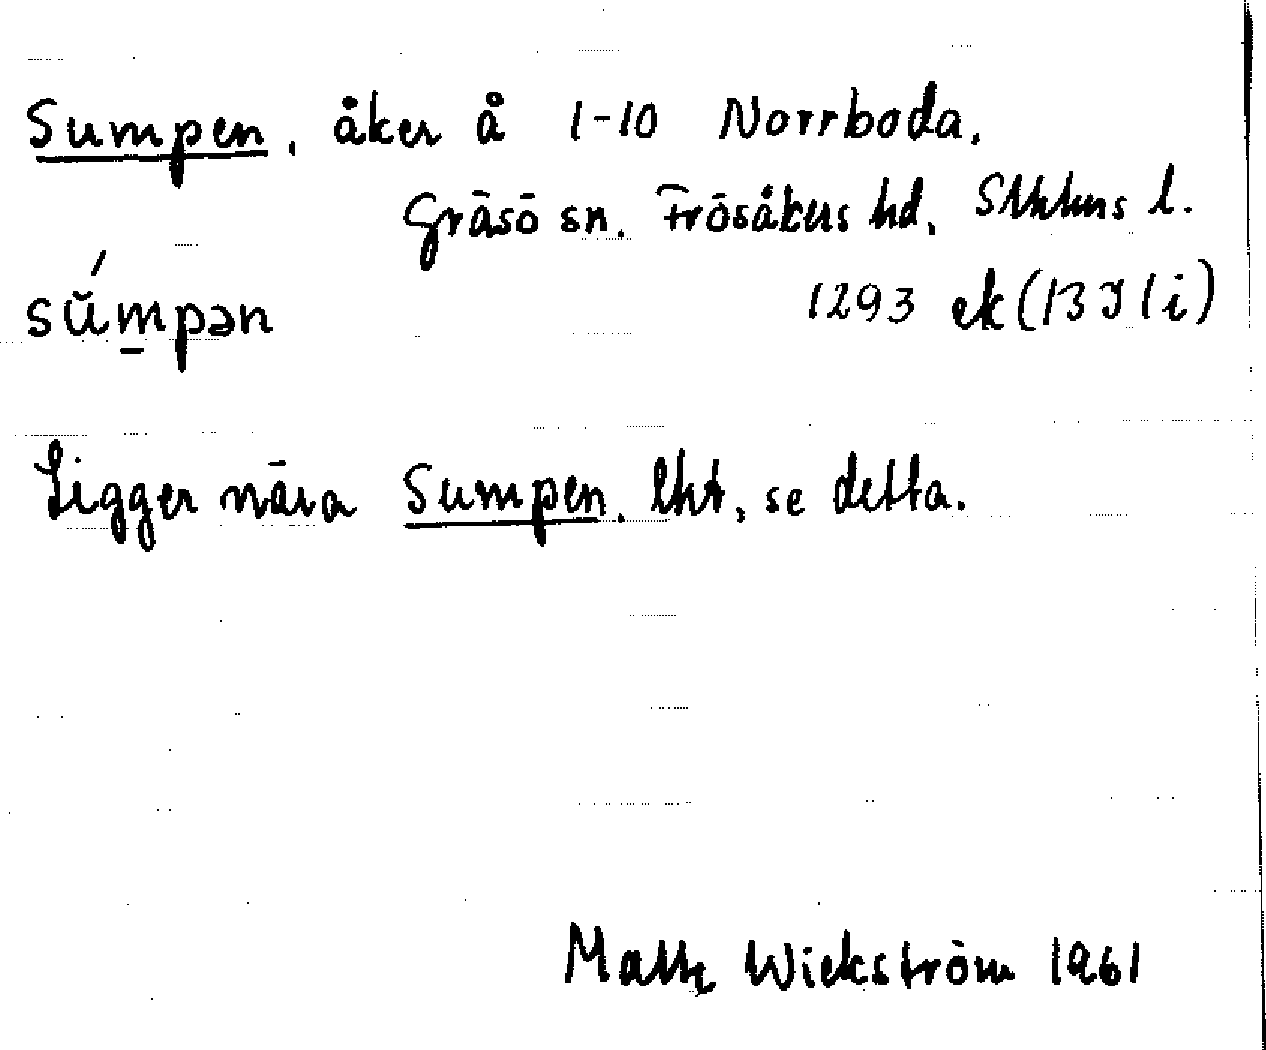 Sumpen, åker å 1-10 Norrboda.
Gräsö sn. Frösåkers hd. Sthlms l.
sŭ́m̱pən
1293 ek (13 I 1 i)
Ligger nära Sumpen, lht, se detta.
Wickström 1961